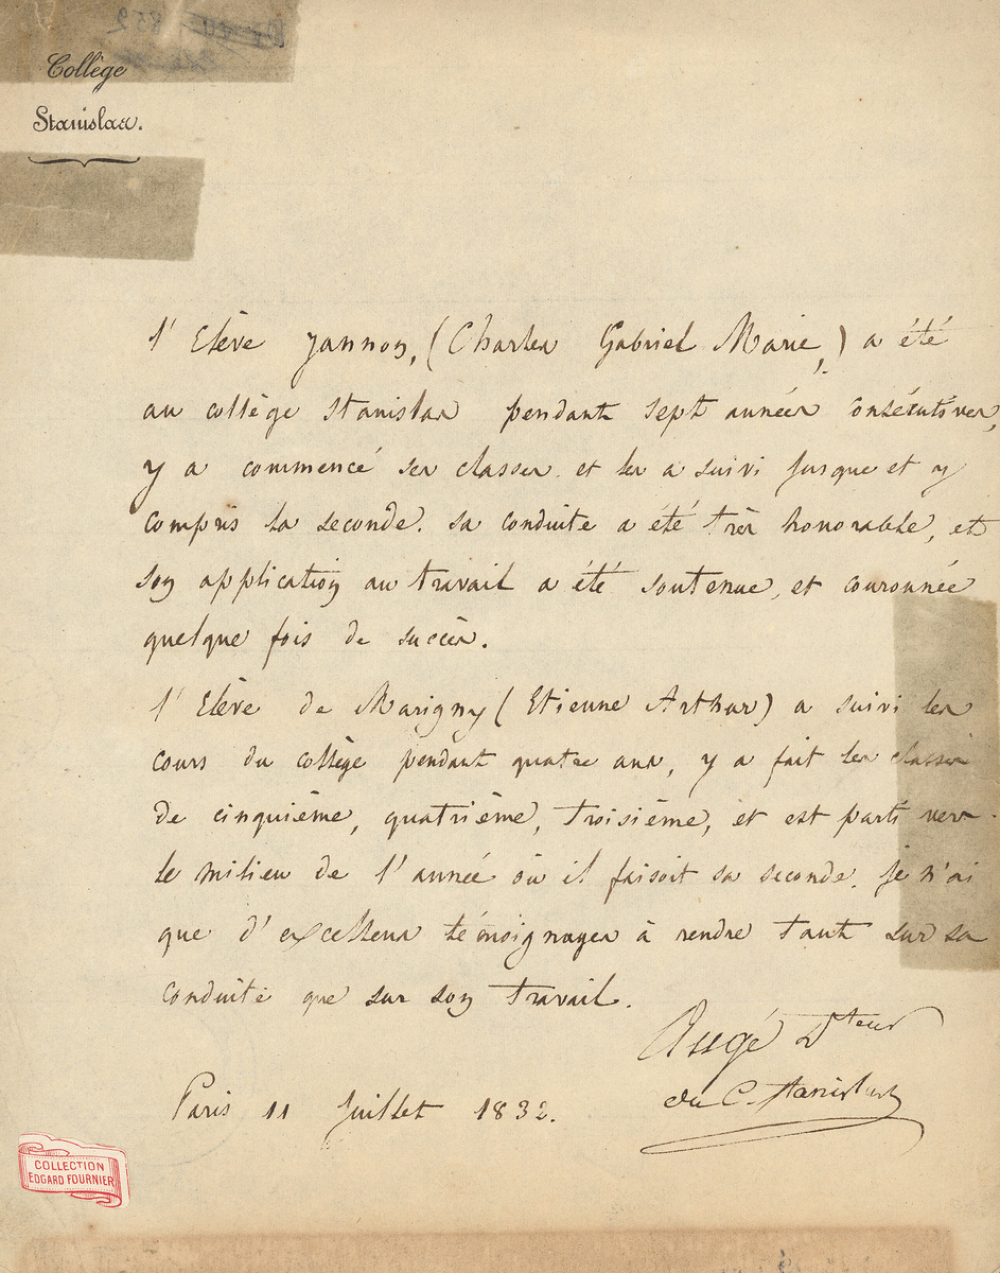 Collège
Stanislas.
l'Elève Jannon, (Charles Gabriel Marie,) a été
au collège Stanislas pendant sept années consécutives,
y a commencé ses classes et les a suivi jusque et y
compris la seconde. sa conduite a été très honorable, et
son application au travail a été soutenue, et couronnée
quelque fois de succès.
l'Elève de Marigny (Etienne Arthur) a suivi les
cours du collège pendant quatre ans, y a fait les classes
de cinquième, quatrième, troisième, et est parti vers
le milieu de l'année où il faisoit sa seconde. Je n'ai
que d'excellens témoignages à rendre tant sur sa
conduite que sur son travail.
Augé Dteur
du C. Stanislas
Paris 11 Juillet 1832.
COLLECTION
EDGARD FOURNIER